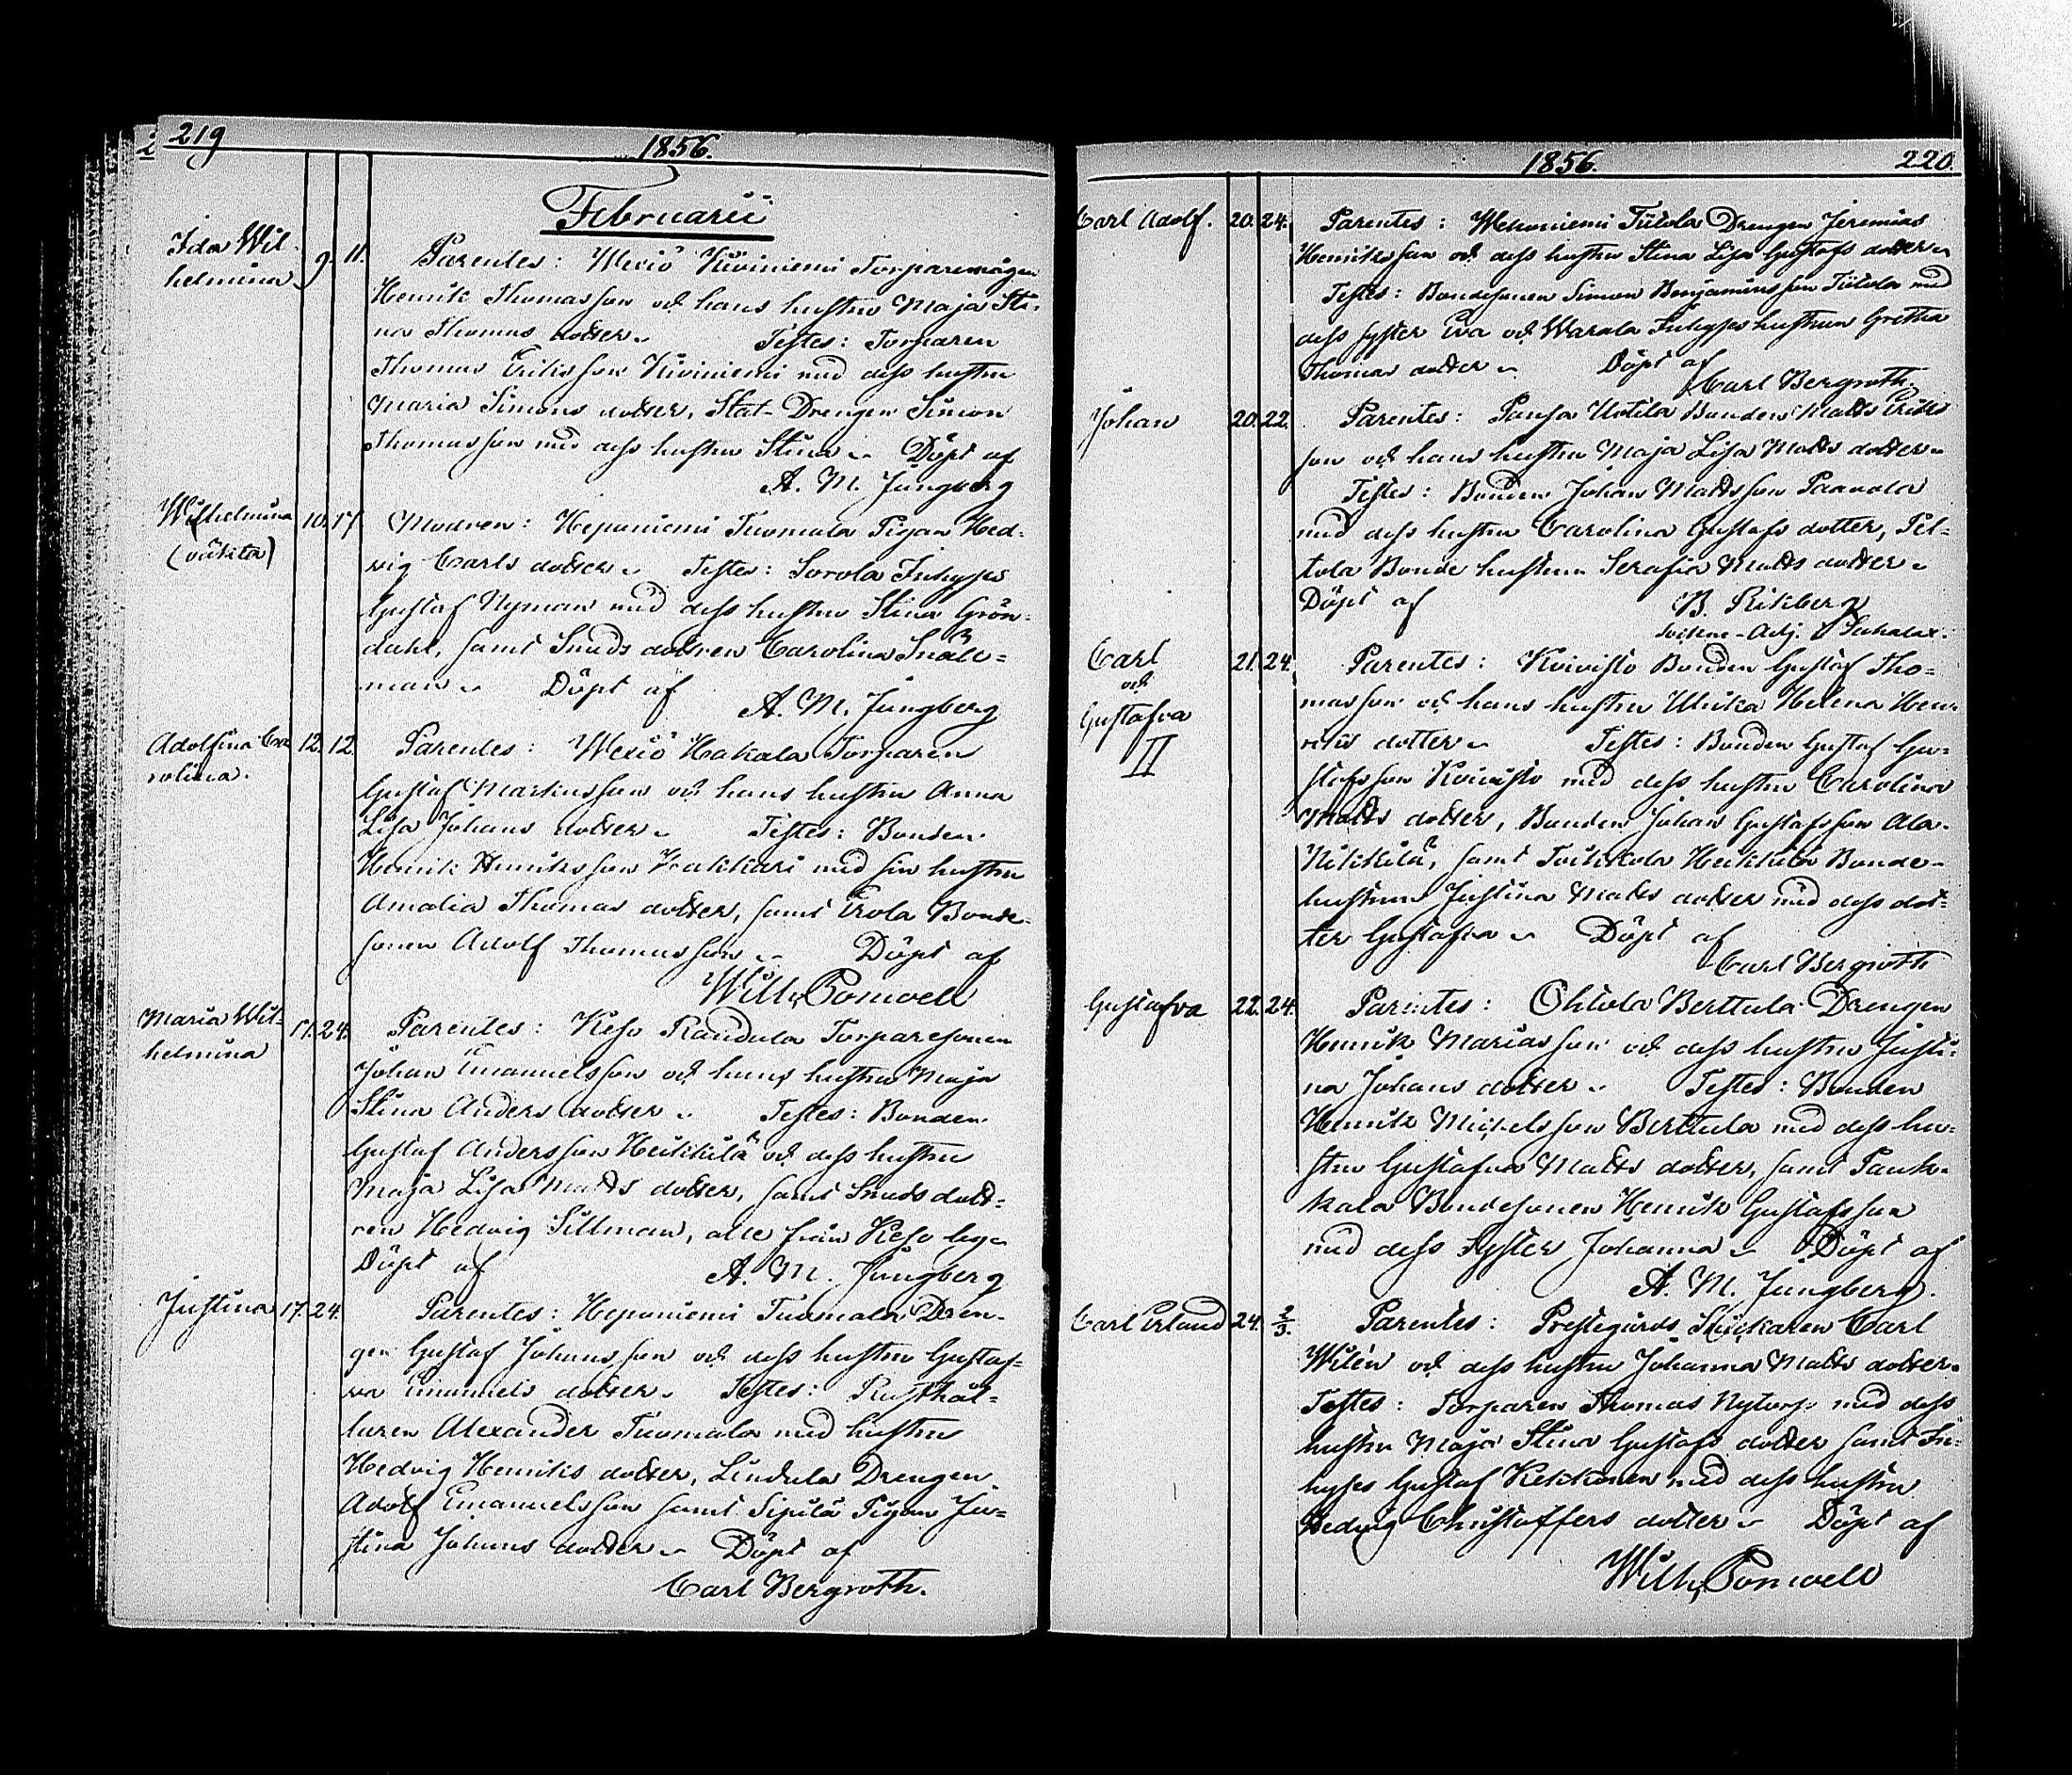 219
1856.
Februarii
Ida Wil-
helmina
9. 11.
Parentes: Wexiö Kiviniemi Torparemågen
Henrik Thomasson och hans hustru Maja Sti-
na Thomas dotter. Testes: Torparen
Thomas Eriksson Kiviniemi med dess hustru
Maria Simons dotter, Stat-Drengen Simon
Thomasson med dess hustru Stina. Döpt af
A. M. Ljungberg
Wilhelmina
(oäkta)
10. 17.
Modren: Heponiemi Tuomala Pigan Hed-
vig Carls dotter. Testes: Sorola Inhyses
Gustaf Nyman med dess hustru Stina Grön-
dahl, samt Smeds dottren Carolina
man. Döpt af
A. M. Ljungberg
Adolfina Ca-
rolina.
12. 12.
Parentes: Wexiö Hakala Torparen
Gustaf Martinsson och hans hustru Anna
Lisa Johans dotter. Testes: Bonden
Henrik Henriksson Krakkari med sin hustru
Amalia Thomas dotter, samt Erola Bonde-
sonen Adolf Thomasson. Döpt af
Wilh. Ponwell
Maria Wil-
helmina
17. 24.
Parentes: Keso Randula Torparesonen
Johan Emanuelsson och hans hustru Maja
Stina Anders dotter. Testes: Bonden
Gustaf Andersson Heikkilä och dess hustru
Maja Lisa Matts dotter, samt Smeds dott-
ren Hedvig Sillman, alle från Keso by.
Döpt af A. M. Ljungberg
Justina
17. 24.
Parentes: Heponiemi Tuomala Dren-
gen Gustaf Johansson och dess hustru Gustaf-
va Emanuels dotter. Testes: Rusthål-
laren Alexander Tuomala med hustru
Hedvig Henriks dotter, Lindula Drengen
Adolf Emanuelsson samt Sipilä Pigan Ju-
stina Johans dotter. Döpt af
Carl Bergroth.
1856.
220.
Carl Adolf.
20. 24.
Parentes: Wehoniemi Tiitola Drengen Jeremias
Henriksson och dess hustru Stina Lisa Gustafs dotter.
Testes: Bondesonen Simon Benjaminsson Tiitola med
dess syster Eva och Warala Inhyseshustrun Gretha
Thomas dotter. Döpt af
Carl Bergroth.
Johan
20. 22.
Parentes: Pansa Uotila Bonden Matts Eriks
son och hans hustru Maja Lisa Matts dotter.
Testes: Bonden Johan Mattsson Paavola
med dess hustru Carolina Gustafs dotter, Pel-
tola Bonde hustrun Serafia Matts dotter.
Döpt af B. Rikberg
Sockne-Adj. i Sahalax.
Carl
och
Gustafva
II
21. 24.
Parentes: Koivisto Bonden Gustaf Tho-
masson och hans hustru Ulrika Helena Hen-
riks dotter. Testes: Bonden Gustaf Gu-
stafsson Koivisto med dess hustru Carolina
Matts dotter, Bonden Johan Gustafsson Ala-
Nikkilä, samt Toikkola Heikkilä Bonde-
hustrun Justina Matts dotter med dess dot-
ter Gustafva. Döpt af
Carl Bergroth
Gustafva
22. 24.
Parentes: Ohtola Berttula Drengen
Henrik Mariasson och dess hustru Justi-
na Johans dotter. Testes: Bonden
Henrik Mickelsson Berttula med dess hu-
stru Gustafva Matts dotter, samt Pauk-
kala Bondesonen Henrik Gustafsson
med dess syster Johanna. Döpt af
A. M. Ljungberg.
Carl Erland
24. 2/3.
Parentes: Prestegårds Stickaren Carl
Wilén och dess hustru Johanna Matts dotter.
Testes: Torparen Thomas Nytorp med dess
hustru Maja Stina Gustafs dotter samt In-
hyses Gustaf Kekkonen med dess hustru
Hedvig Christoffers dotter. Döpt af
Wilh. Ponwell